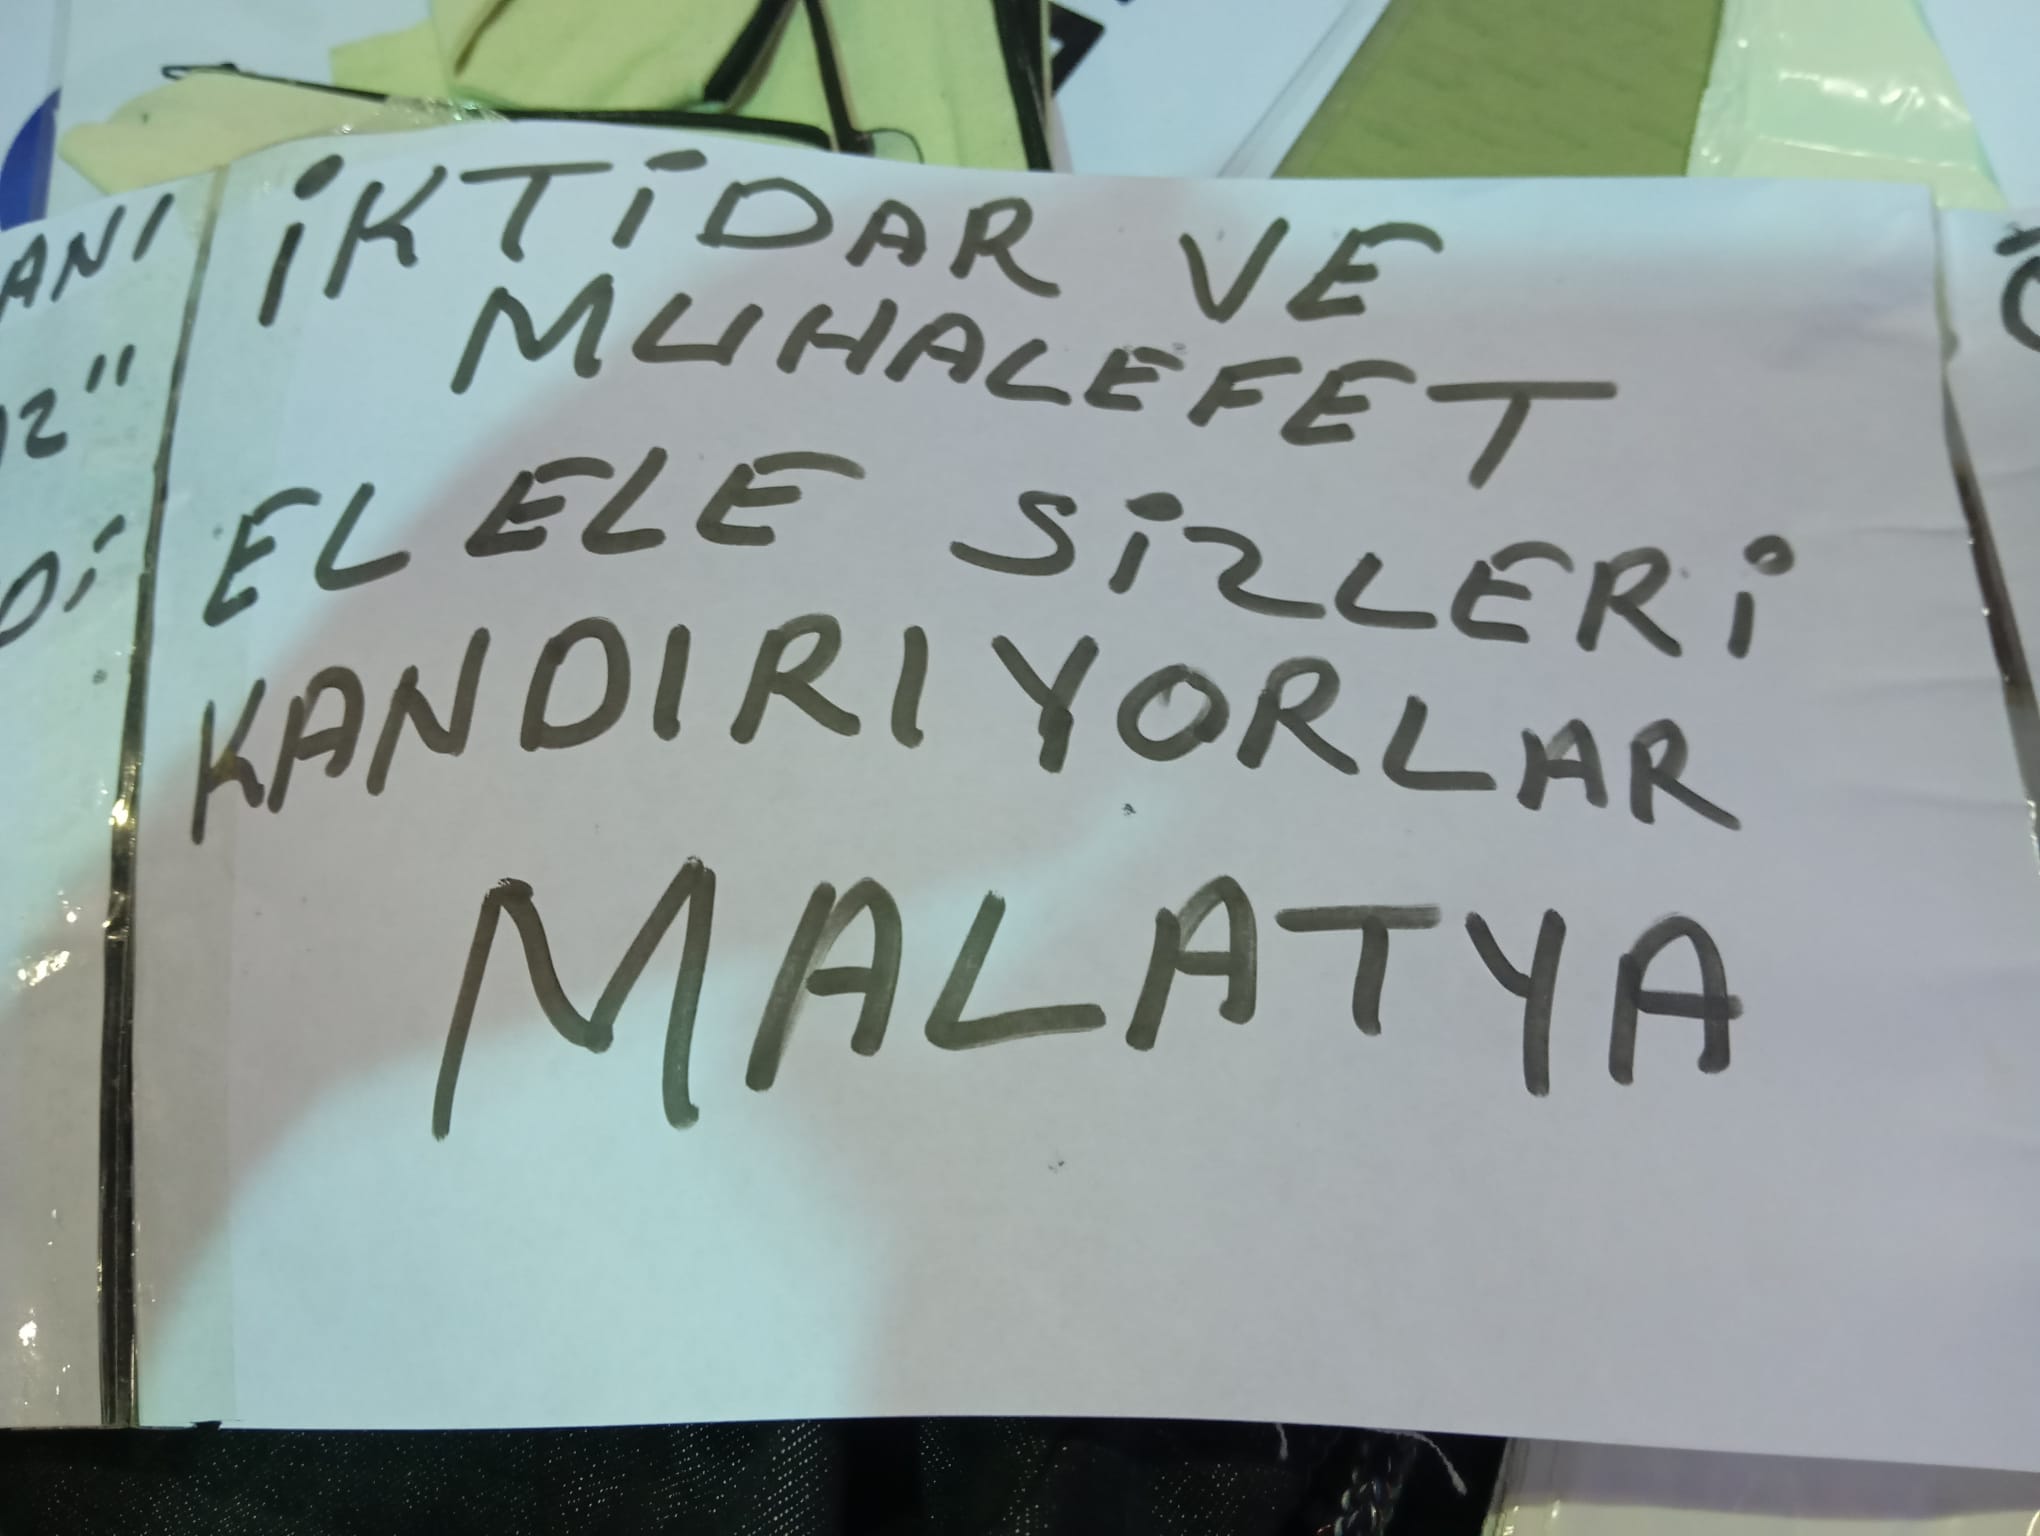 İKTİDAR VE
MUHALEFET
EL ELE SİZLERİ
KANDIRIYORLAR
MALATYA